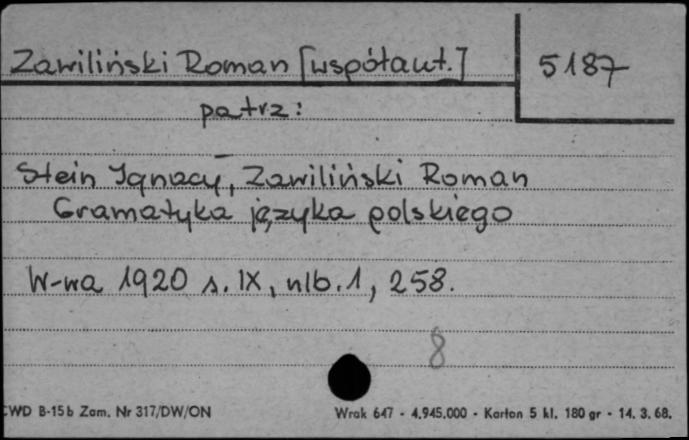 Zawiliński Roman [współaut.]
5187
patrz:
Stein Ignacy, Zawiliński Roman
Gramatyka języka polskiego
W-wa 1920 s. IX, nlb. 1, 258.
8
CWD B-15b Zam. Nr 317/DW/ON
Wrak 647 - 4.945.000 - Karton 5 kl. 180 gr - 14. 3. 68.